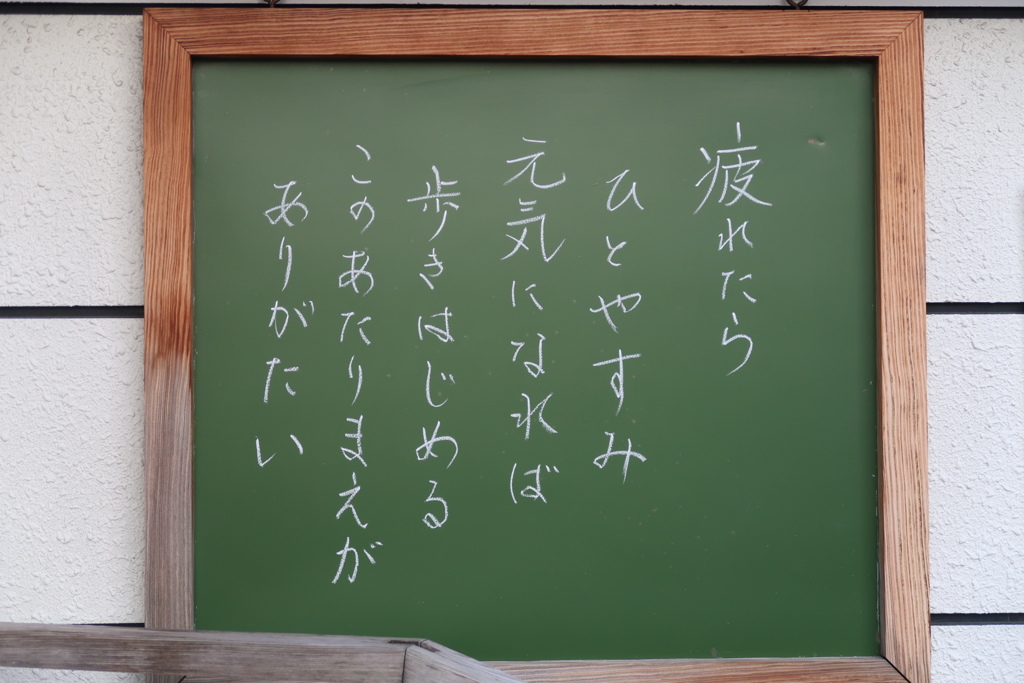 疲れたら
ひとやすみ
元気になれば
歩きはじめる
このあたりまえが
ありがたい